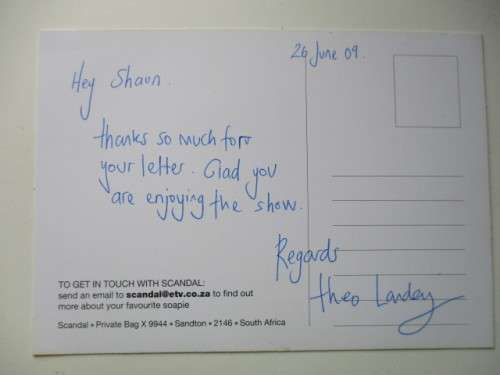 26 June 09.
Hey Shaun.
thanks so much forr
your letter. Glad you
are enjoying the show.
Regards
Theo Landey
TO GET IN TOUCH WITH SCANDAL:
send an email to scandal@etv.co.za to find out
more about your favourite soapie
Scandal • Private Bag X 9944 • Sandton • 2146 • South Africa